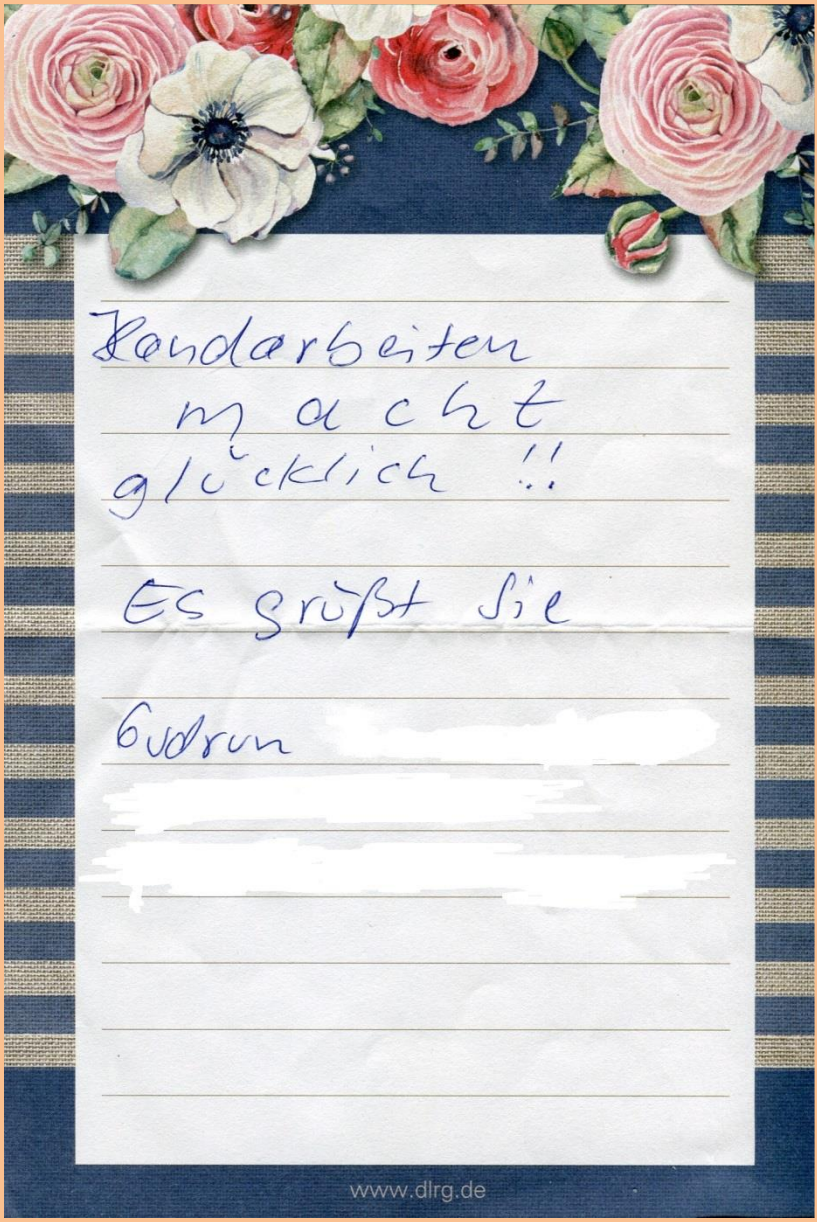 Handarbeiten
macht
glücklich !!
Es grüßt Sie
Gudrun
www.dlrg.de